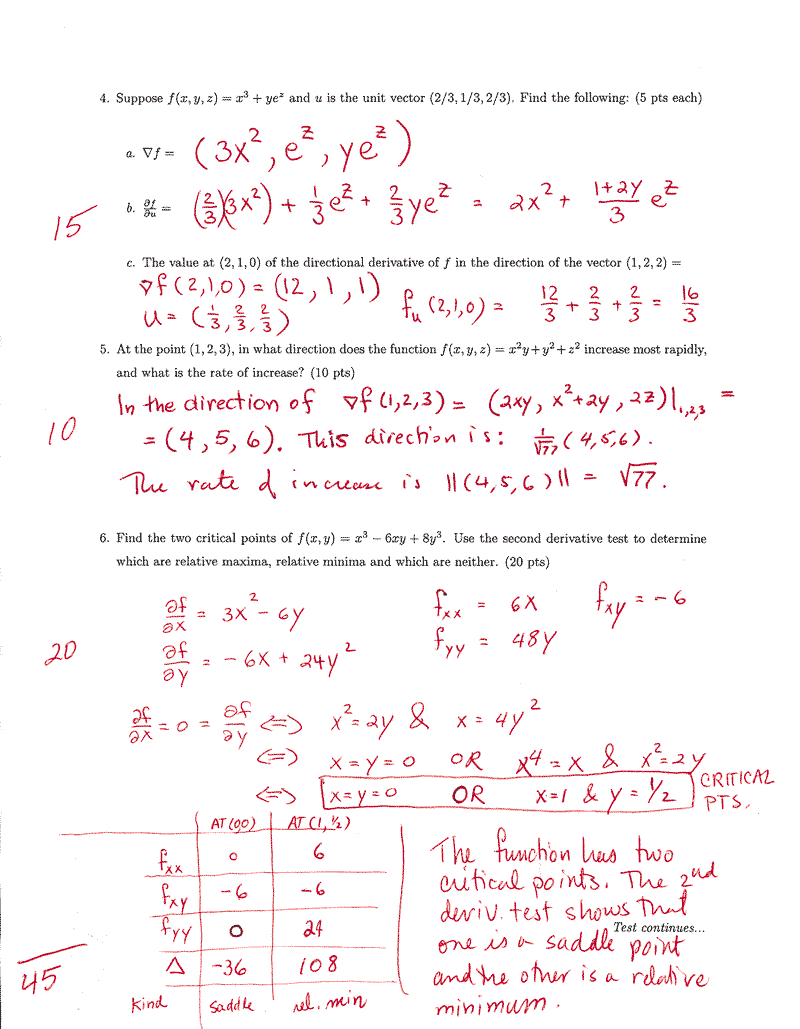 4. Suppose f(x, y, z) = x³ + ye^z and u is the unit vector (2/3, 1/3, 2/3). Find the following: (5 pts each)
a. ∇f = (3x², e^z, ye^z)
b. ∂f/∂u = (2/3)(3x²) + 1/3 e^z + 2/3 ye^z = 2x² + (1+2y)/3 e^z
15
c. The value at (2, 1, 0) of the directional derivative of f in the direction of the vector (1, 2, 2) =
∇f(2,1,0) = (12, 1, 1)
u = (1/3, 2/3, 2/3) f_u(2,1,0) = 12/3 + 2/3 + 2/3 = 16/3
5. At the point (1, 2, 3), in what direction does the function f(x, y, z) = x²y + y² + z² increase most rapidly,
and what is the rate of increase? (10 pts)
In the direction of ∇f(1,2,3) = (2xy, x²+2y, 2z)|1,2,3 =
10
= (4, 5, 6). This direction is: 1/√77 (4,5,6).
The rate of increase is ||(4,5,6)|| = √77.
6. Find the two critical points of f(x, y) = x³ − 6xy + 8y³. Use the second derivative test to determine
which are relative maxima, relative minima and which are neither. (20 pts)
∂f/∂x = 3x² - 6y f_xx = 6x f_xy = -6
20
∂f/∂y = -6x + 24y² f_yy = 48y
∂f/∂x = 0 = ∂f/∂y ⇔ x² = 2y & x = 4y²
⇔ x = y = 0 OR x⁴ = x & x² = 2y
⇔ x = y = 0 OR x = 1 & y = 1/2 CRITICAL PTS.
AT (0,0) AT (1, ½)
f_xx 0 6
f_xy -6 -6
f_yy 0 24
Δ -36 108
Kind saddle rel. min
45
The function has two
critical points. The 2nd
deriv. test shows that
Test continues...
one is a saddle point
and the other is a relative
minimum.